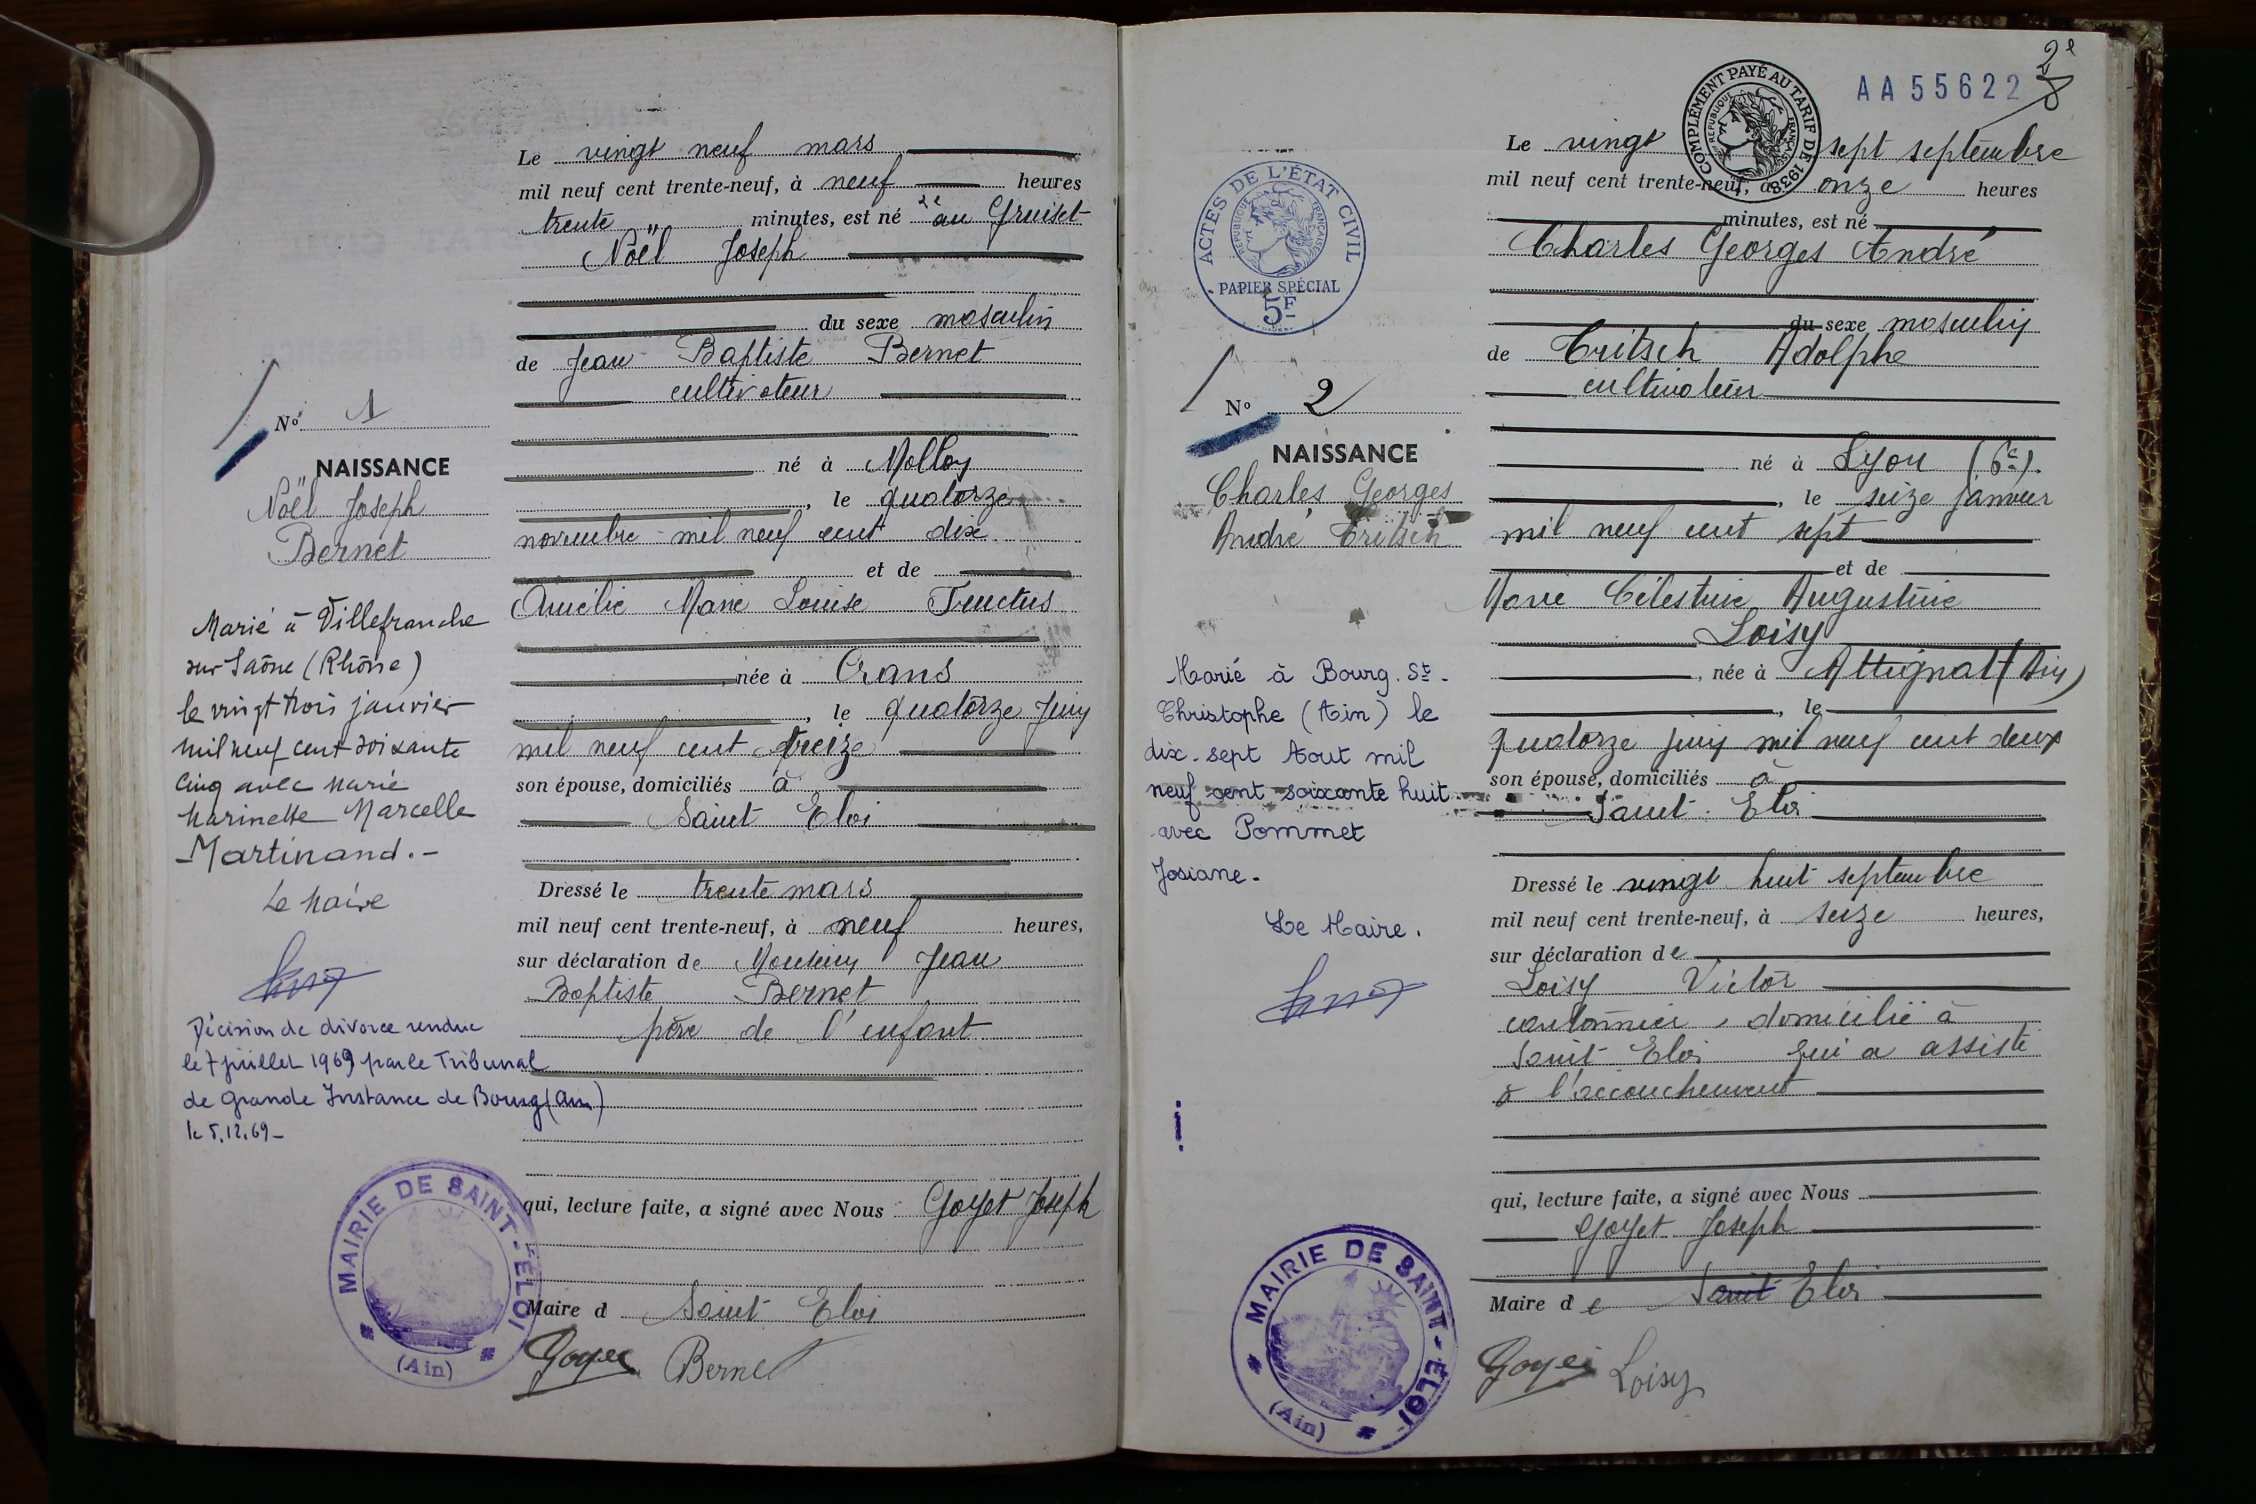 Le vingt neuf mars
mil neuf cent trente-neuf, à neuf heures
trente minutes, est né au Gruiset
Noël Joseph
du sexe masculin
de Jean Baptiste Bernet
cultivateur
né à Mollon
, le quatorze
novembre mil neuf cent dix
et de
Amélie Marie Louise Tructus
, née à Crans
, le quatorze juin
mil neuf cent treize
son épouse, domiciliés à
Saint Eloi
Dressé le trente mars
mil neuf cent trente-neuf, à neuf heures,
sur déclaration de Monsieur Jean
Baptiste Bernet
père de l'enfant
qui, lecture faite, a signé avec Nous Goyet Joseph
Maire d Saint Eloi
Goyet Bernet
No 1
NAISSANCE
Noël Joseph
Bernet
Marié à Villefranche
sur Saône (Rhône)
le vingt trois janvier
mil neuf cent soixante
cinq avec Marie
Marinette Marcelle
Martinand.-
Le Maire
Décision de divorce rendue
le 7 juillet 1969 par le Tribunal
de Grande Instance de Bourg (Ain)
le 5.12.69-
MAIRIE DE SAINT-ÉLOI
(Ain)
2e
AA 55622
COMPLÉMENT PAYÉ AU TARIF DE 1938
RÉPUBLIQUE FRANÇAISE
Le vingt sept septembre
mil neuf cent trente-neuf, à onze heures
minutes, est né
Charles Georges André
du sexe masculin
de Tritsch Adolphe
cultivateur
né à Lyon (6e).
, le seize janvier
mil neuf cent sept
et de
Marie Célestine Augustine
Loisy
, née à Attignat (Ain)
, le
quatorze juin mil neuf cent deux
son épouse, domiciliés à
Saint Eloi
Dressé le vingt huit septembre
mil neuf cent trente-neuf, à seize heures,
sur déclaration de
Loisy Victor
cantonnier, domicilié à
Saint Eloi qui a assisté
à l'accouchement
qui, lecture faite, a signé avec Nous
Goyet Joseph
Maire de Saint Eloi
Goyet Loisy
ACTES DE L'ÉTAT CIVIL
RÉPUBLIQUE FRANÇAISE
PAPIER SPÉCIAL
5F
No 2
NAISSANCE
Charles Georges
André Tritsch
Marié à Bourg. St-
Christophe (Ain) le
dix-sept Aout mil
neuf cent soixante huit
avec Pommet
Josiane.
Le Maire.
MAIRIE DE SAINT-ÉLOI
(Ain)